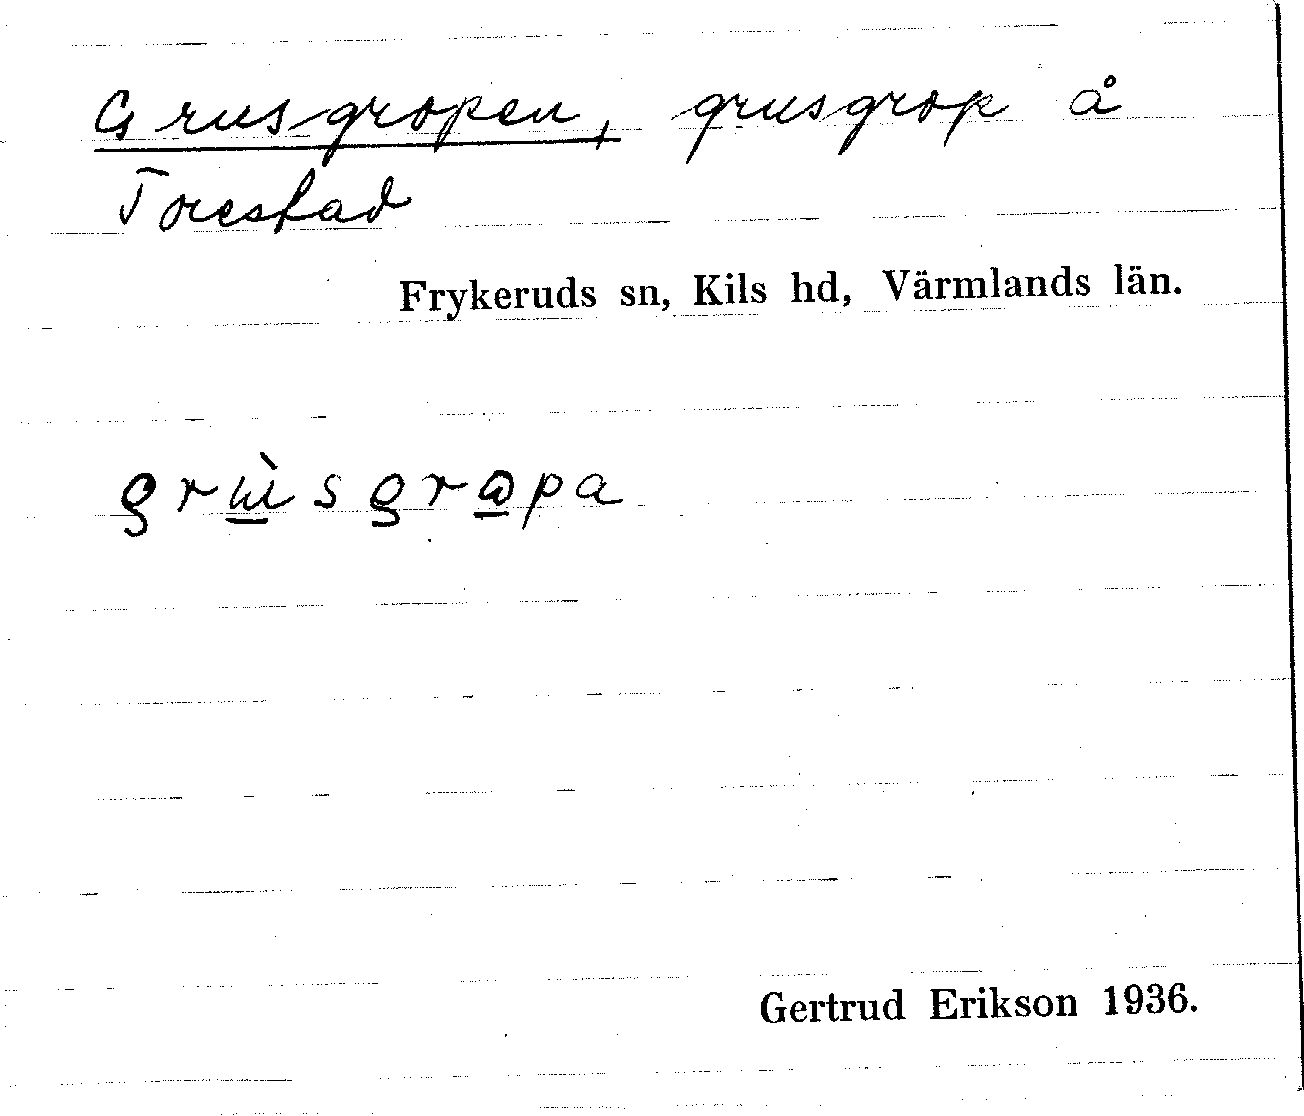 Grusgropen, grusgrop å
Torestad
Frykeruds sn, Kils hd, Värmlands län.
grɯ̀sgrɷpa
Gertrud Erikson 1936.